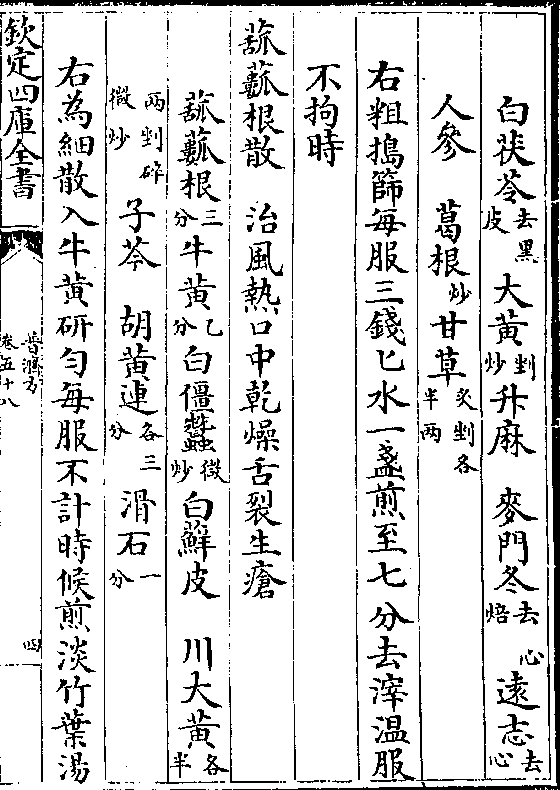 白茯苓去黑皮 大黄剉炒 升麻 麥門冬去心焙 遠志去心
人參 葛根炒 甘草炙剉各半两
右粗搗篩每服三錢匕水一盞煎至七分去滓温服
不拘時
蓏蓏根散 治風熱口中乾燥舌裂生瘡
蓏蓏根三分 牛黄乙分 白僵蠶微炒 白鮮皮 川大黄各半
两剉碎微炒 子芩 胡黄連各三分 滑石一分
右為細散入牛黄研匀每服不計時候煎淡竹葉湯
欽定四庫全書
普濟方
卷五十八
四